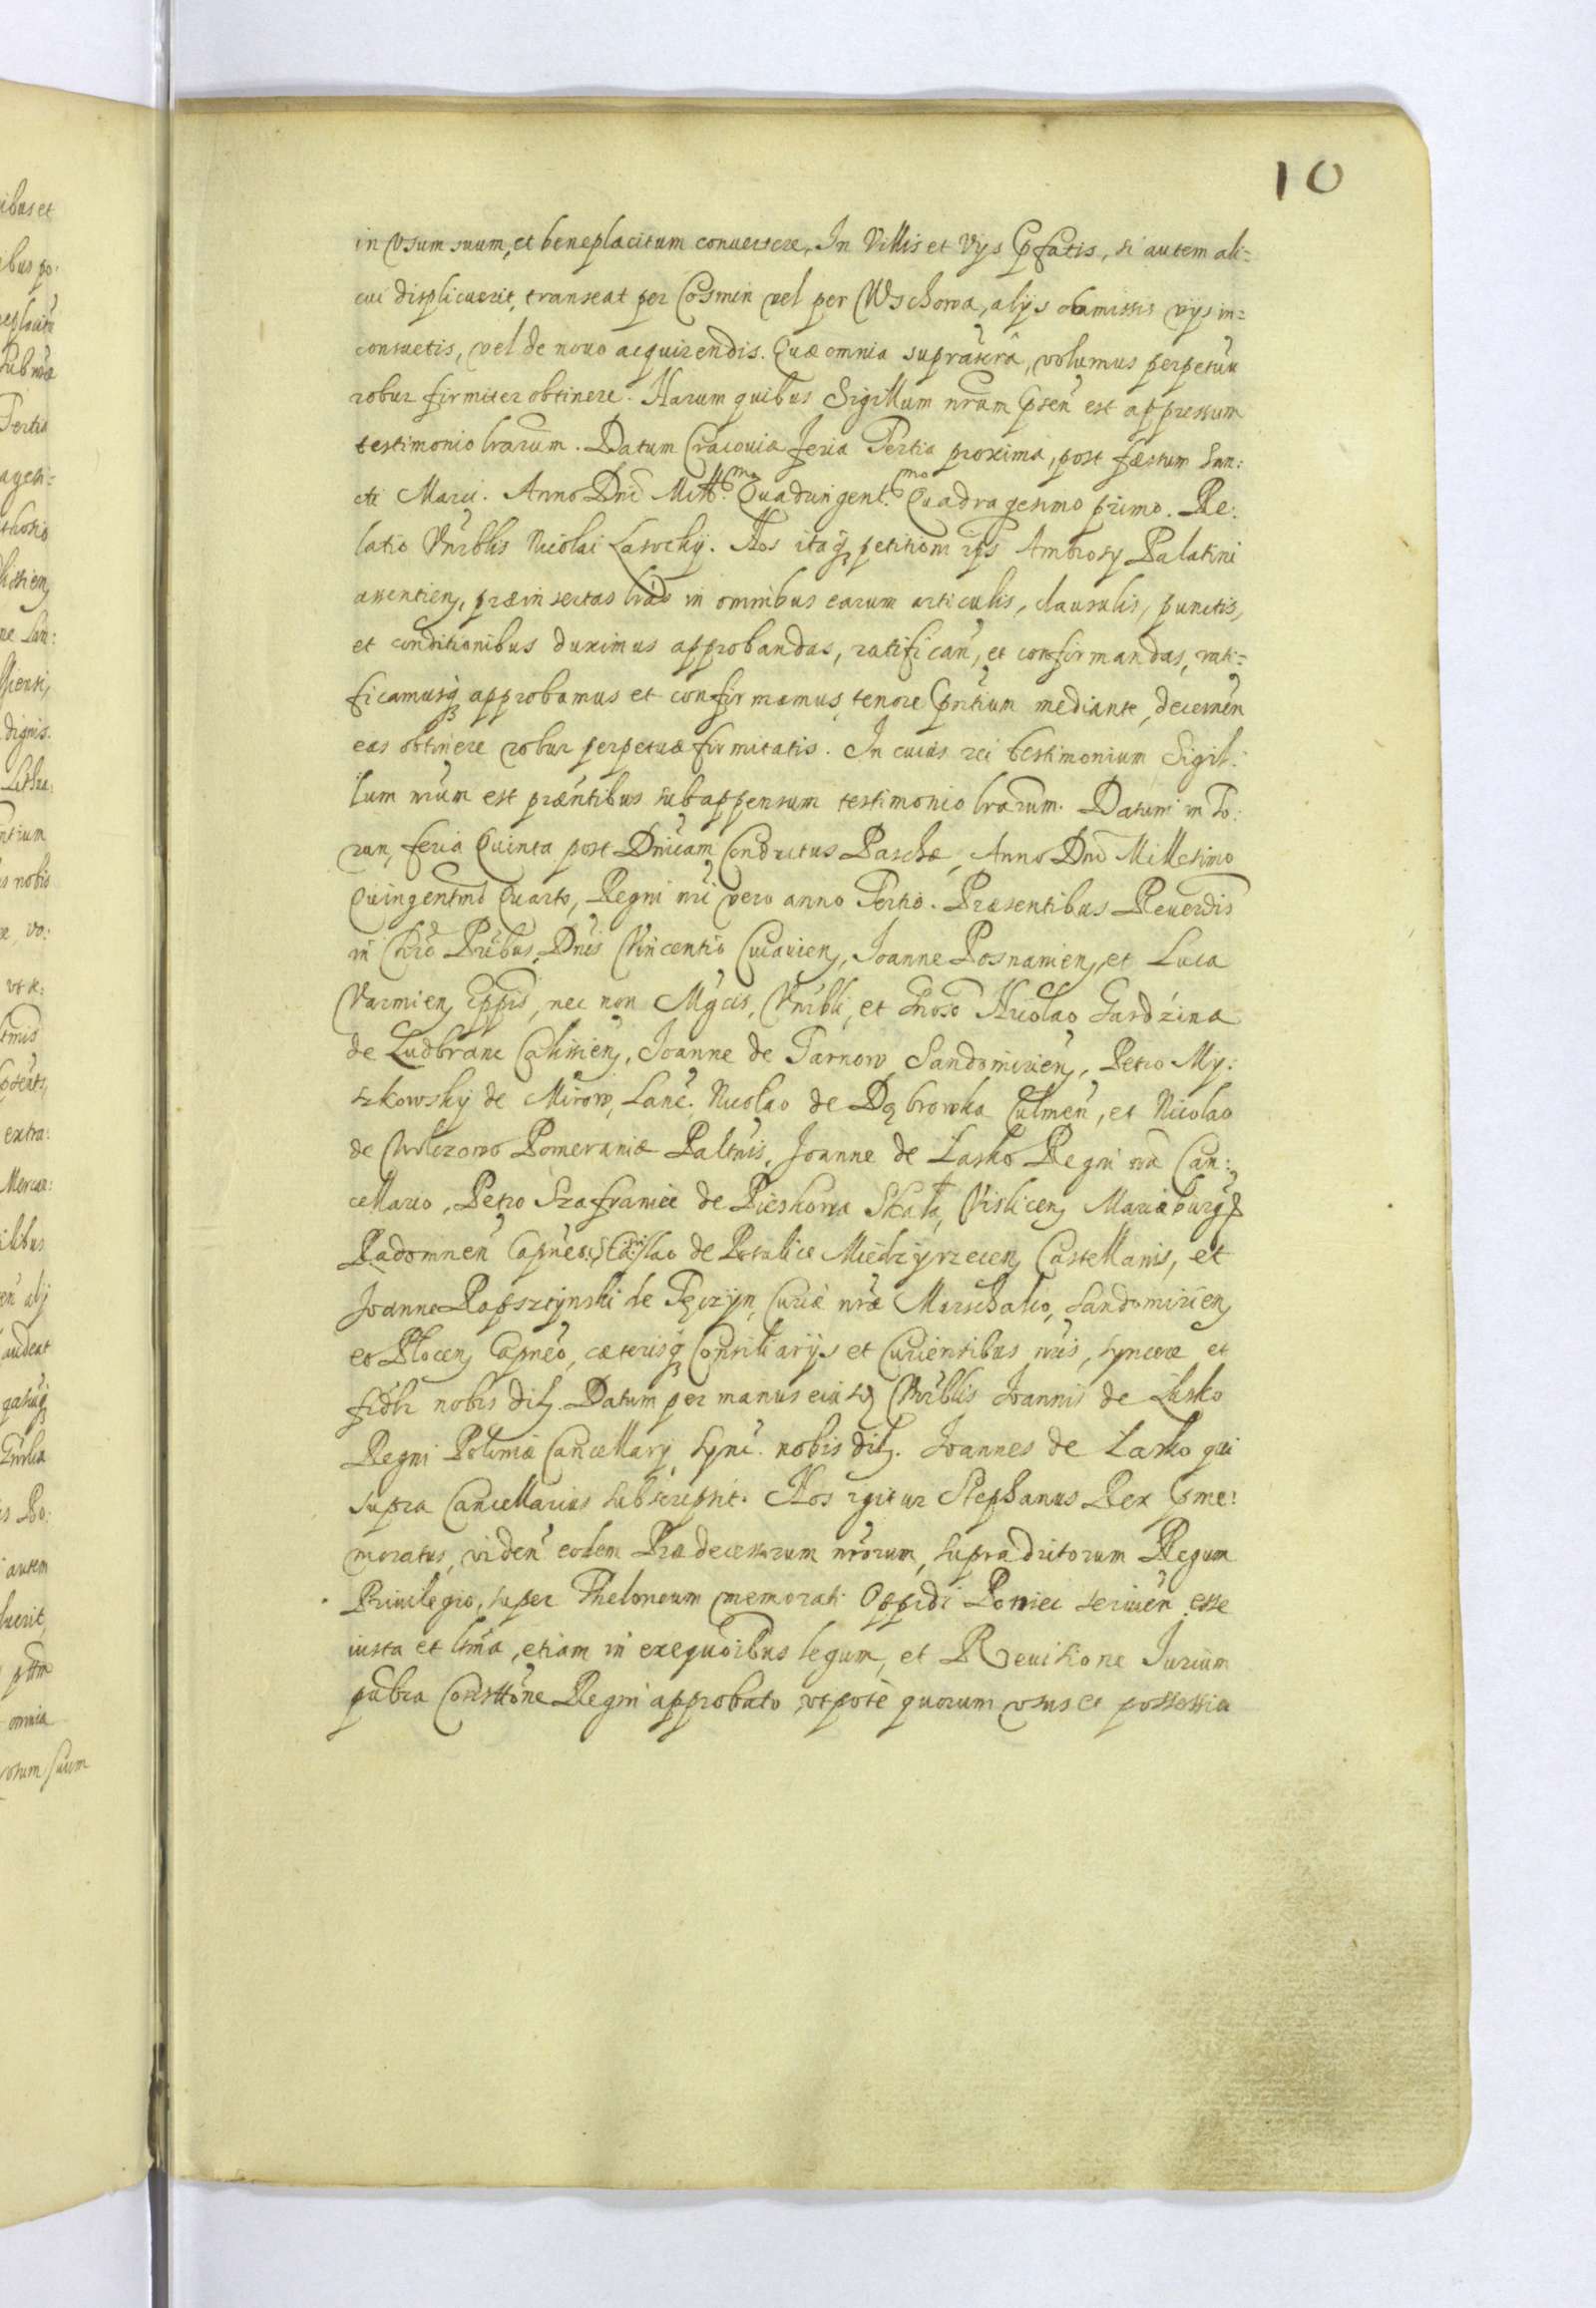 10
in Vsum suum, et beneplacitum conuertere, In Villis et Vijs Pfatis, si autem ali=
cui displicuerit, transeat per Cosmin vel per Wschowa, alijs obmissis vijs in=
consuetis, vel de nouo acquirendis. Quæ omnia suprascrã, volumus perpetuũ
robur firmiter obtinere. Harum quibus Sigillum nrũm Psen̄ est appressum
testimonio lrarum. Datum Cracouiæ feria Tertia proxima, post fæstum San:
cti Marci. Anno Dnĩ Mill.mo Quadringent.mo Quadragesimo primo. Re:
latio Vnrĩblis Nicolai Lasochij. Nos itaq petitioni ips Ambrosij Palatini
assentien, præinsertas lras in omnibus earum articulis, clausulis, punctis,
et conditionibus duximus approbandas, ratifican̄, et confirmandas, rati=
ficamusq approbamus et confirmamus, tenore Pntium mediante, decernen̄
eas obtinere robur perpetuæ firmitatis. In cuius rei testimonium Sigil:
lum nrũm est præntibus subappensum testimonio lrarum. Datum in To:
run, feria Quinta post Dnicam Conductus Paschæ, Anno Dnĩ Millesimo
Quingentmõ Quarto, Regni nri vero anno Tertio. Præsentibus Reuerdis
in Chrõ Pribus, Dnis Vincentio Cuiauien, Joanne Posnanien, et Luca
Varmien Eppis, nec non Mgcis, Vnribli, et Gnoso Nicolao Gardzina
de Ludbranc Calissien, Joanne de Tarnow, Sandomirien, Petro My:
szkowskij de Mirow, Lanc. Nicolao de Dąbrowka Culmen̄, et Nicolao
de Wolczowo Pomeraniæ Paltnis, Joanne de Lasko Regni nri Can:
cellario, Petro Szafraniec de Pieskowa Skała, Vislicen Mariæburg
Radomnen̄ Capneo, de Potulice Miedzyrzecen, Castellanis, et
Joanne Rapsztynski de Tęczyn, Curiæ nræ Marschalco, Sandomirien
et Plocen Capneo, cæterisq Consiliarijs et Curientibus nris, syncere et
fidlr nobis dil. Datum per manus eiusd Vnrĩblis Joannis de Lasko
Regni Poloniæ Cancellarij, sync. nobis dil. Joannes de Lasko qui
supra Cancellarius subscripsit. Nos igitur Stephanus Rex Pme:
moratus, viden̄ eodem Prædecessorum nrorum, supradictorum Regum
Priuilegio, super Theloneum memorati Oppidi Poniec seruien̄ esse
iusta et ltma, etiam in exequõibus legum, et Reuisione Jurium
publca Consttõne Regni approbato, vtpote quorum vsus et possessio